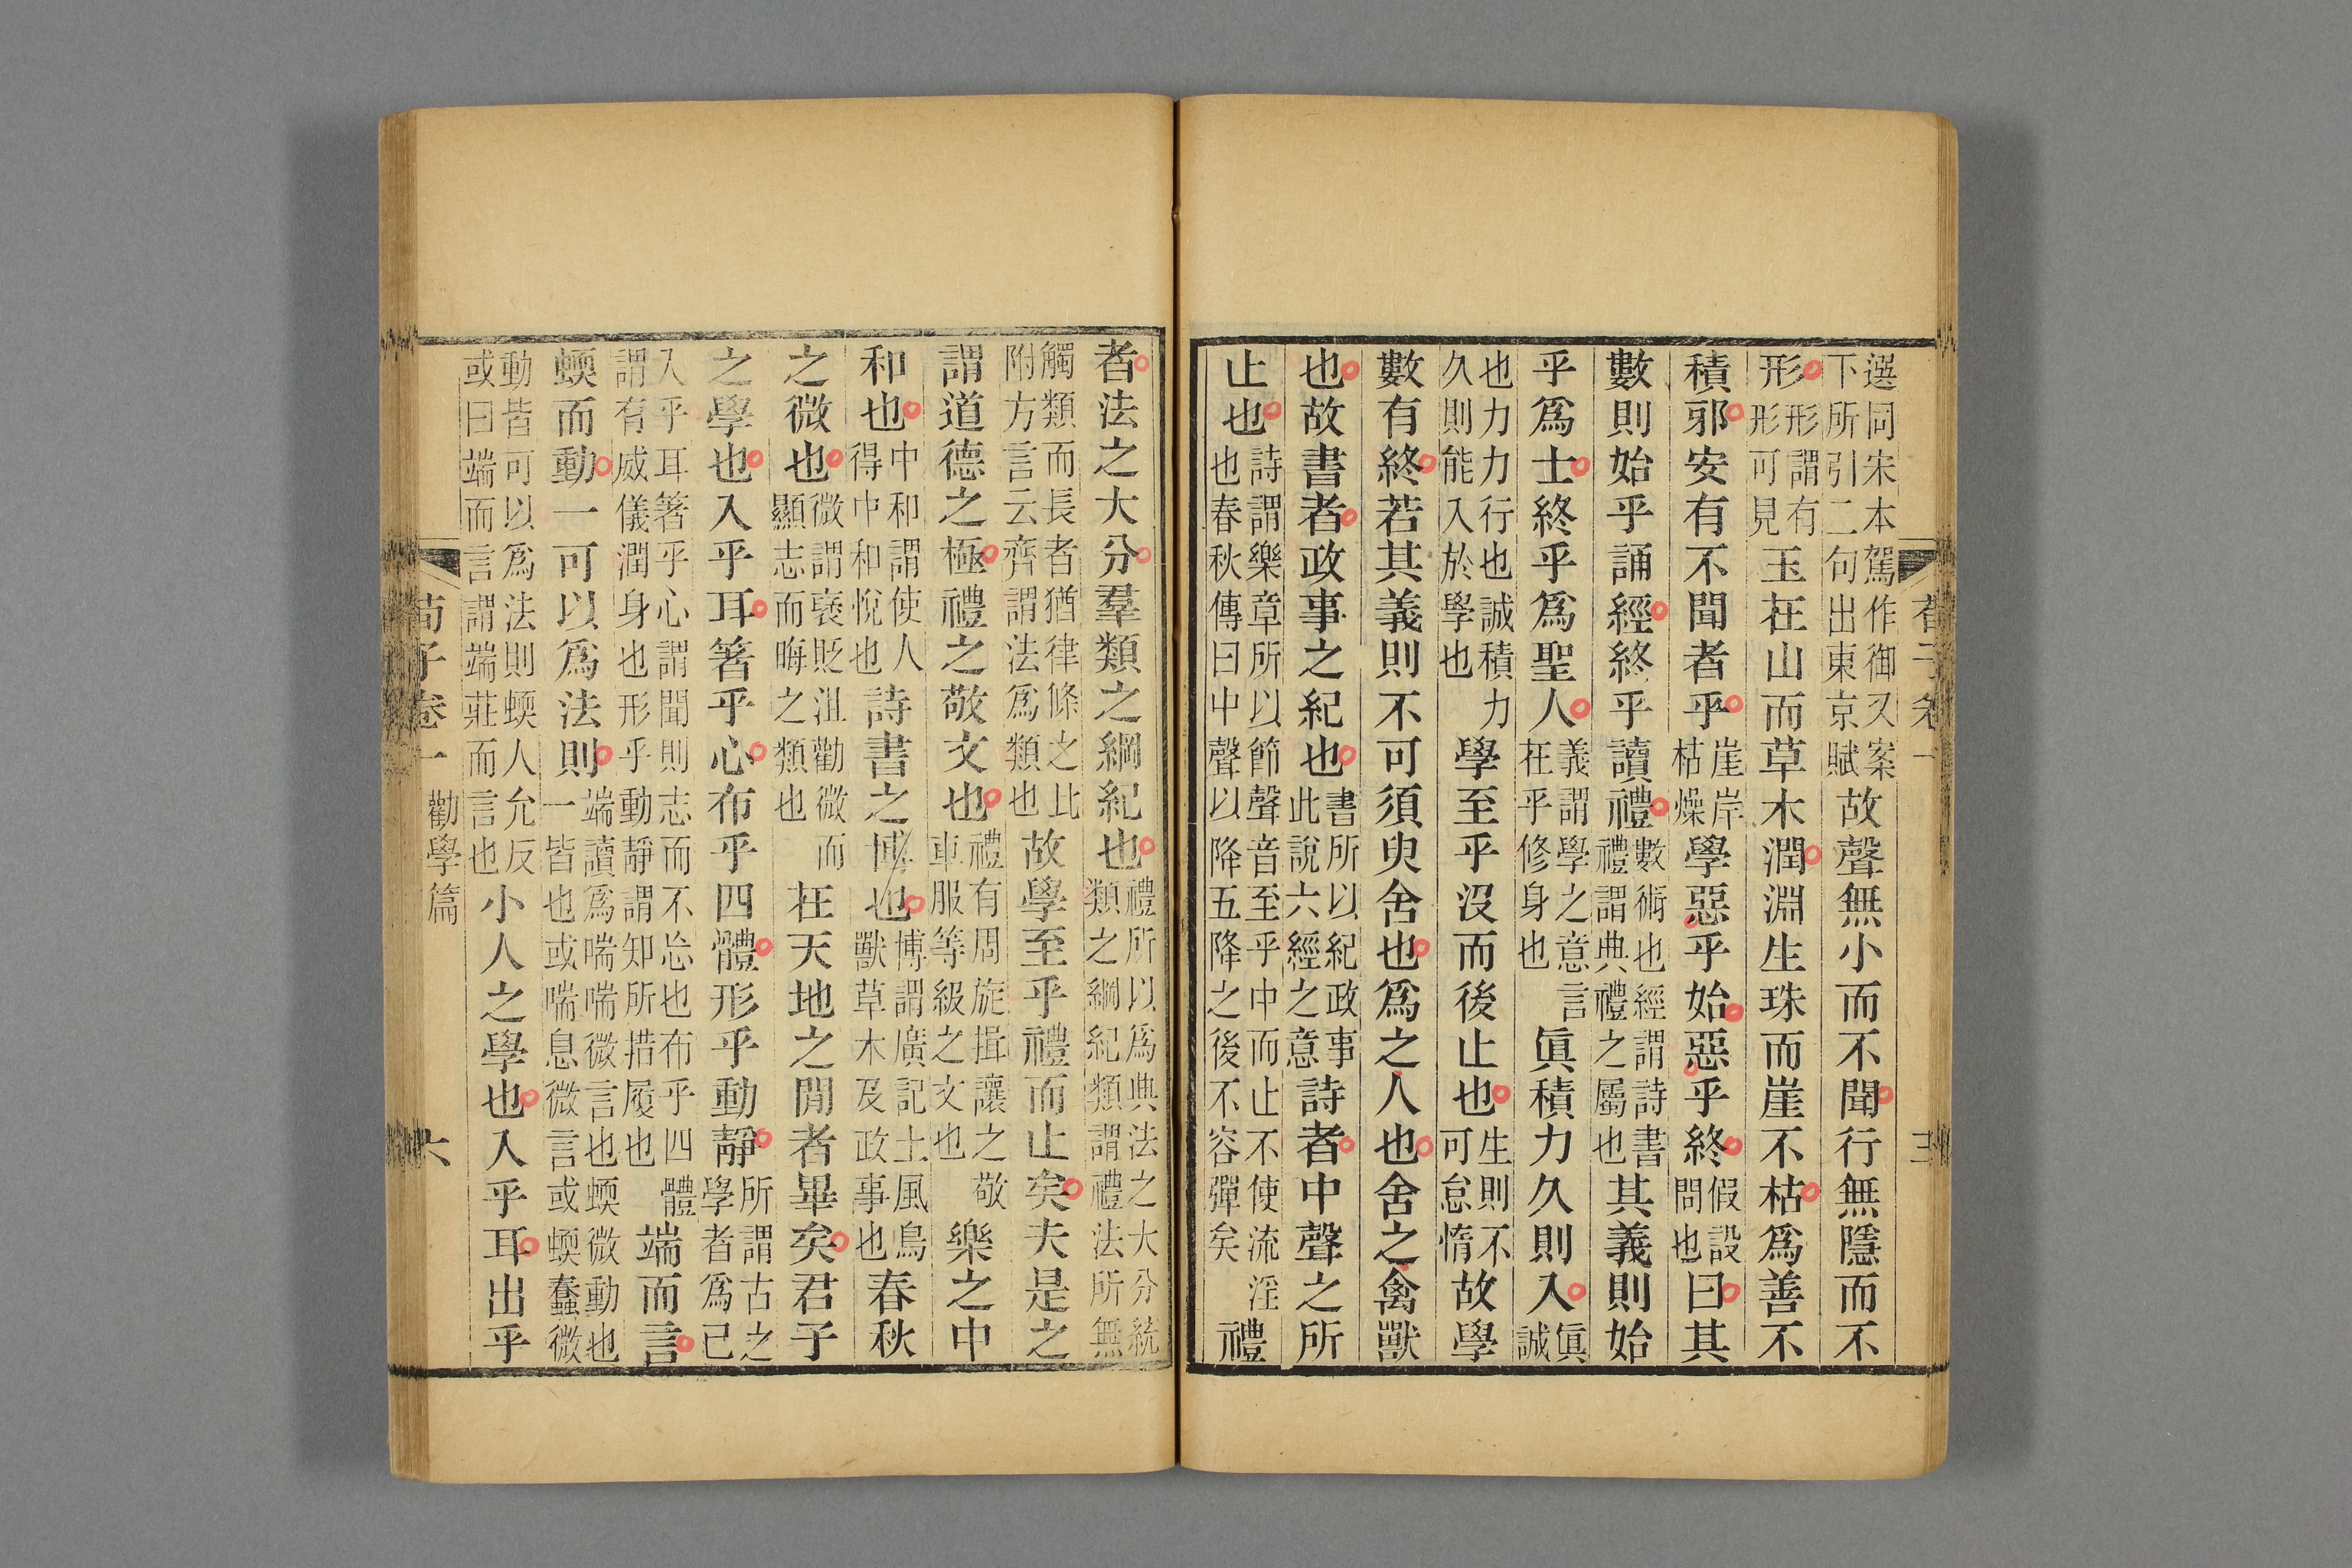 選同宋本駕作御又案下所引二句出東京賦故聲無小而不聞行無隱而不
形形謂有形可見玉在山而草木潤淵生珠而崖不枯爲善不
積邪安有不聞者乎崖岸枯燥學惡乎始惡乎終假設問也曰其
數則始乎誦經終乎讀禮數術也經謂詩書禮謂典禮之屬也其義則始
乎爲士終乎爲聖人義謂學之意言在乎修身也眞積力久則入眞誠
也力力行也誠積力久則能入於學也學至乎沒而後止也生則不可怠惰故學
數有終若其義則不可須臾舍也爲之人也舍之禽獸
也故書者政事之紀也書所以紀政事此說六經之意詩者中聲之所
止也詩謂樂章所以節聲音至乎中而止不使流淫也春秋傳曰中聲以降五降之後不容彈矣禮
者法之大分羣類之綱紀也禮所以爲典法之大分統類之綱紀類謂禮法所無
觸類而長者猶律條之比附方言云齊謂法爲類也故學至乎禮而止矣夫是之
謂道德之極禮之敬文也禮有周旋揖讓之敬車服等級之文也樂之中
和也中和謂使人得中和悅也詩書之博也博謂廣記土風鳥獸草木及政事也春秋
之微也微謂褒貶沮勸微而顯志而晦之類也在天地之閒者畢矣君子
之學也入乎耳箸乎心布乎四體形乎動靜所謂古之學者爲己
入乎耳箸乎心謂聞則志而不忘也布乎四體謂有威儀潤身也形乎動靜謂知所措履也端而言
蝡而動一可以爲法則端讀爲喘喘微言也蝡微動也一皆也或喘息微言或蝡蠢微
動皆可以爲法則蝡人允反或曰端而言謂端莊而言也小人之學也入乎耳出乎
荀子卷一 勸學篇 六